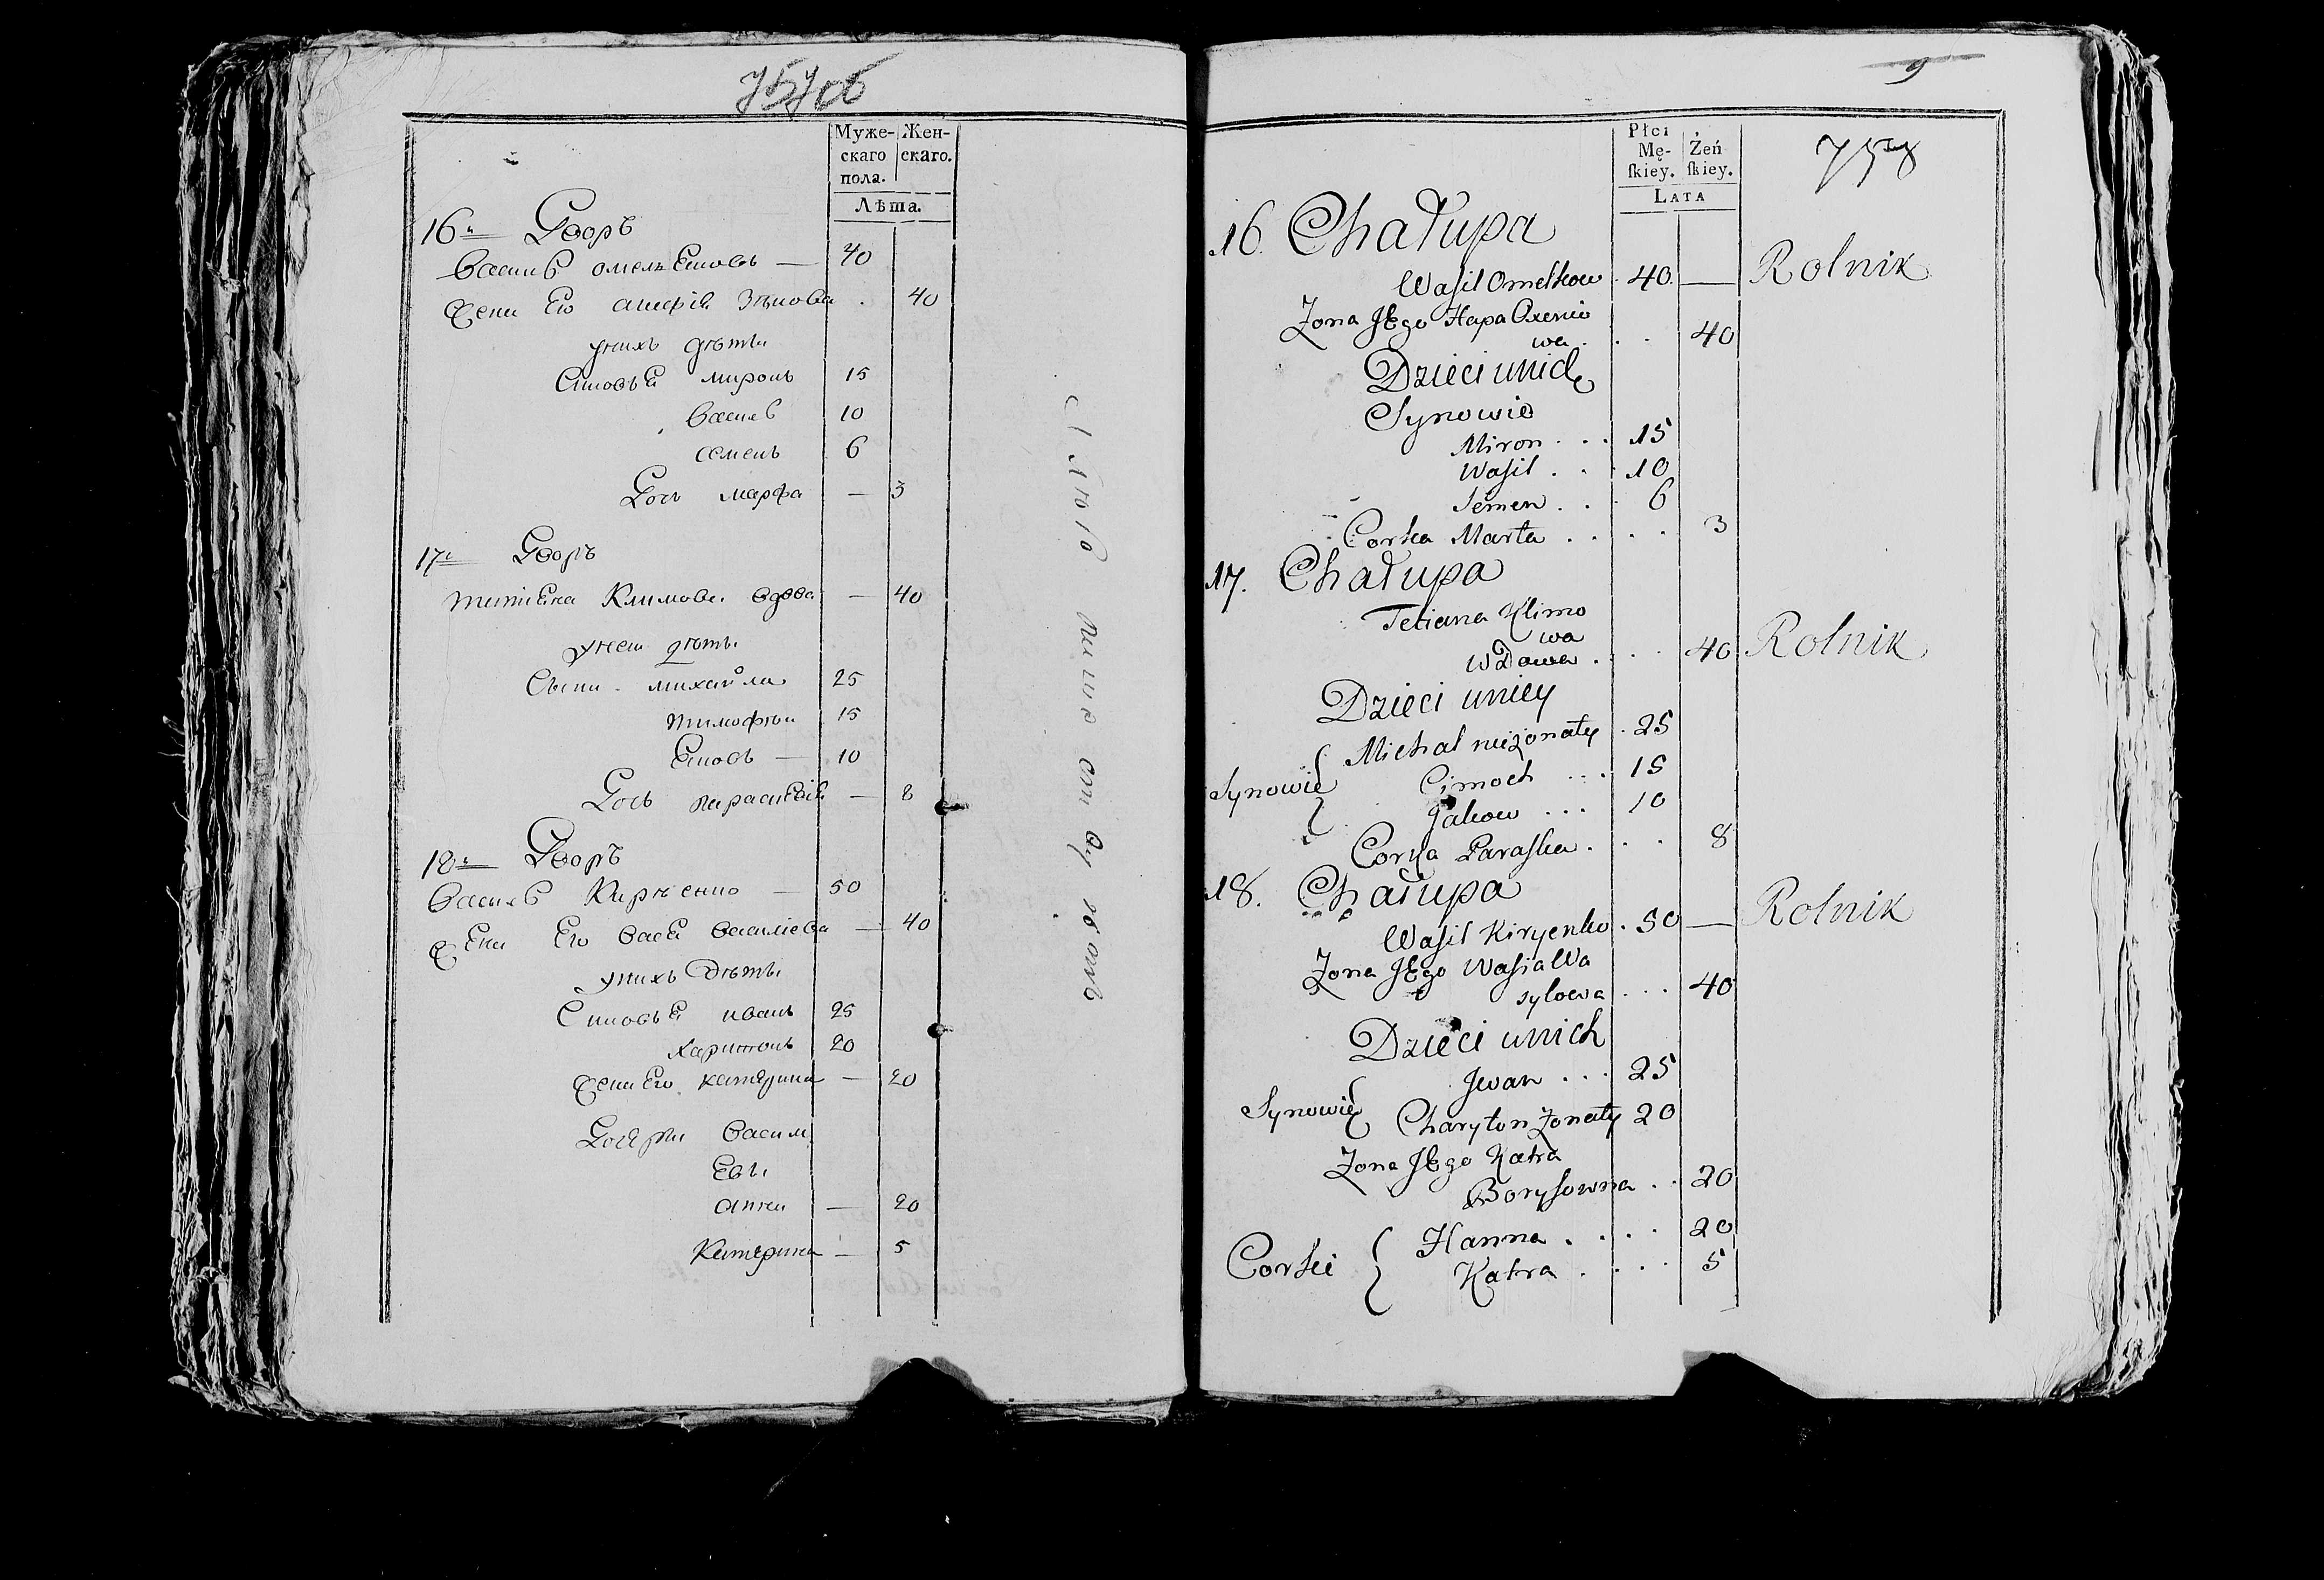 757об
Муже- Жен-
скаго скаго.
пола.
Лѣта.
16й Дворъ
Василь 40
Жена Его 40
унихъ дѣти
Сыновья миронъ 15
Василь 10
семенъ 6
Дочь марфа — 3
17й Дворъ
татьяна Климова вдова — 40
унеи дѣти
Сыны михайла 25
тимофѣи 15
Яковъ — 10
Дочь параскевiя — 8
18й Дворъ
Василь Киріенко — 50
Жена Его Васса Василіева — 40
унихъ Дѣти
Сыновья иванъ 25
харитонъ 20
Жена Его катерина — 20
Дочери
анна — 20
Катерина — 5
9
758
Płci Żeń
Mę- ſkiey.
ſkiey.
LATA
16. Chałupa
Wasil Omelkow 40. — Rolnik
Zona JEgo Hapa Oxenio
wa . . . 40
Dzieci unich
Synowie
Miron . . . 15
Wasil . . . 10
Semen . . . 6
Corka Marta . . . . 3
17. Chałupa
Tetiana Klimo
wa
wdowa . . . 40 Rolnik
Dzieci uniey
Michał nieżonaty . 25
Synowie Cimoch . . . 15
Jakow . . . 10
Corka Paraska . . . 8
18. Chałupa
Wasil Kiryenko . 50 — Rolnik
Zona JEgo Wasia Wa
sylowa . . . 40
Dzieci unich
Jwan . . . 25
Synowie Charyton Zonaty 20
Zona JEgo Katra
Borysowna . . 20
Hanna . . . . 20
Corki
Katra . . . . 5